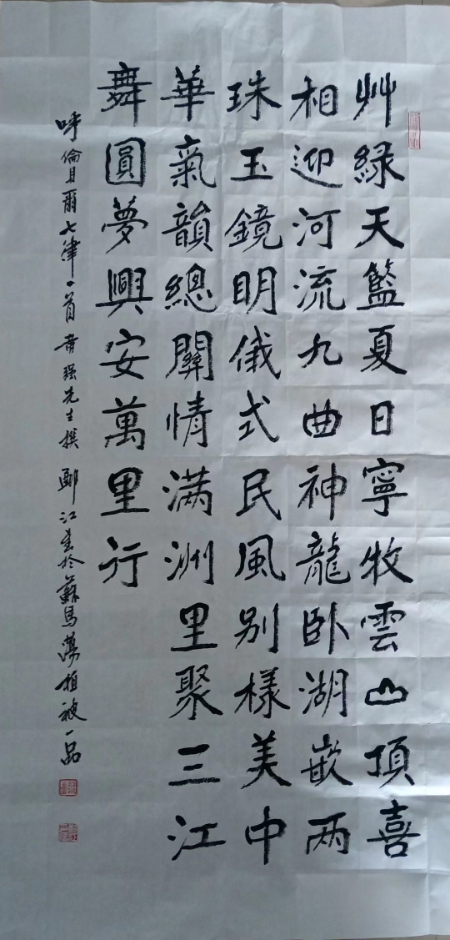 艸綠天籃夏日寧牧雲山頂喜
相迎河流九曲神龍卧湖嵌两
珠玉鏡明儀式民風别樣美中
華氣韻總關情满洲里聚三江
舞圓夢興安萬里行
呼倫貝爾七律一首 黄强先生撰 鄭江書於蘇馬蕩植被一品